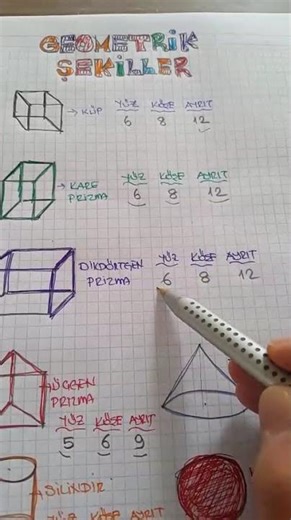 GEOMETRİK
ŞEKİLLER
KÜP YÜZ KÖŞE AYRIT
6 8 12
KARE PRİZMA YÜZ KÖŞE AYRIT
6 8 12
DİKDÖRTGEN PRİZMA YÜZ KÖŞE AYRIT
6 8 12
ÜÇGEN
PRİZMA
YÜZ KÖŞE AYRIT
5 6 9
SİLİNDİR